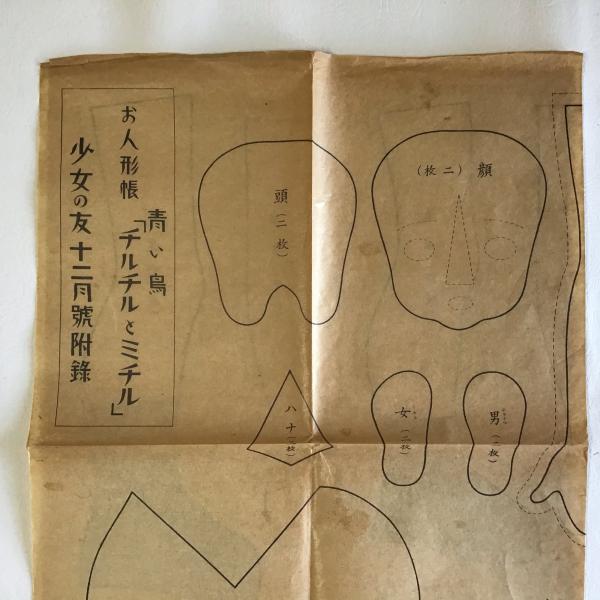 お人形帳
青い鳥
「チルチルとミチル」
少女の友十二月號附錄
頭(二枚)
顔(二枚)
ハナ(二枚)
女(二枚)
男(二枚)